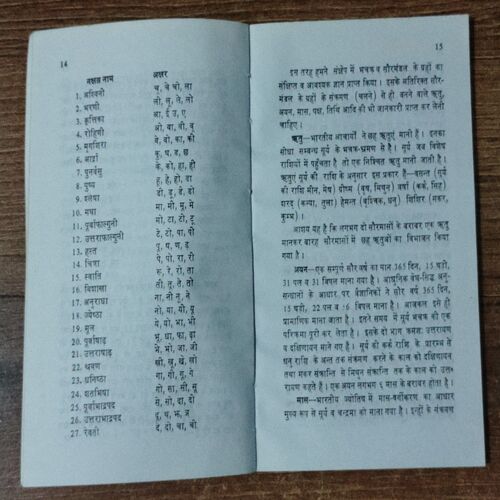 14
नक्षत्र नाम अक्षर
1. अश्विनी चू, चे चो, ला
2. भरणी ली, लु, ले, लो
3. कृत्तिका आ, ई उ, ए
4. रोहिणी ओ, वा, वी, वू
5. मृगशिरा वे, वो, का, की
6. आर्द्रा कू, घ, ङ, छ
7. पुनर्वसु के, को, हा, ही
8. पुष्य हू, हे, हो, डा
9. श्लेषा डी, डू, डे, डो
10. मघा मा, मी, मू, मे
11. पूर्वाफाल्गुनी मो, टा, टी, टू
12. उत्तराफाल्गुनी टे, टो, पा, पी
13. हस्त पू, ष, ण, ठ
14. चित्रा पे, पो, रा, री
15. स्वाति रू, रे, रो, ता
16. विशाखा ती, तू, ते, तो
17. अनुराधा ना, नी, नू, ने
18. ज्येष्ठा नो, या, यी, यू
19. मूल ये, यो, भा, भी
20. पूर्वाषाढ़ भू, धा, फा, ढा
21. उत्तराषाढ़ भे, भो, जा, जी
22. श्रवण खी, खू, खे, खो
23. धनिष्ठा गा, गी, गू, गे
24. शतभिषा गो, सा, सी, सू
25. पूर्वाभाद्रपद से, सो, दा, दी
26. उत्तराभाद्रपद दू, थ, झ, ञ
27. रेवती दे, दो, चा, ची
15
इस तरह हमने संक्षेप में भचक्र व सौरमंडल के ग्रहों का
संक्षिप्त व आवश्यक ज्ञान प्राप्त किया । इसके अतिरिक्त सौर-
मंडल के ग्रहों के संक्रमण (चलने) से ही बनने वाले ऋतु,
अयन, मास, पक्ष, तिथि आदि की भी जानकारी प्राप्त कर लेनी
चाहिए ।
ऋतु—भारतीय आचार्यों ने छह ऋतुएं मानी हैं । इनका
सीधा सम्बन्ध सूर्य के भचक्र-भ्रमण से है । सूर्य जब विशेष
राशियों में पहुँचता है, तो एक निश्चित ऋतु मानी जाती है ।
ऋतुएं सूर्य की राशि के अनुसार इस प्रकार हैं—वसन्त (सूर्य
की राशि मीन, मेष) ग्रीष्म (वृष, मिथुन) वर्षा (कर्क, सिंह)
शरद (कन्या, तुला) हेमन्त (वृश्चिक, धनु) शिशिर (मकर,
कुम्भ) ।
आशय यह है कि लगभग दो सौरमासों के बराबर एक ऋतु
मानकर बारह सौरमासों में छह ऋतुओं का विभाजन किया
गया है ।
अयन—एक सम्पूर्ण सौर वर्ष का मान 365 दिन, 15 घड़ी,
31 पल व 31 विपल माना गया है । आधुनिक वेध-सिद्ध अनु-
सन्धानों के आधार पर वैज्ञानिकों ने सौर वर्ष 365 दिन,
15 घड़ी, 22 पल व विपल माना है । आजकल इसे ही
प्रामाणिक माना जाता है । इतने समय में सूर्य भचक्र की एक
परिक्रमा पूरी कर लेता है । इसके दो भाग क्रमशः उत्तरायण
व दक्षिणायन माने गए हैं । सूर्य की कर्क राशि के प्रारम्भ से
धनु राशि के अन्त तक संक्रमण करने के काल को दक्षिणायन
तथा मकर संक्रान्ति से मिथुन संक्रान्ति तक के काल को उत्त-
रायण कहते हैं । एक अयन लगभग ६ मास के बराबर होता है ।
मास—भारतीय ज्योतिष में मास-वर्गीकरण का आधार
मुख्य रूप से सूर्य व चन्द्रमा को माना गया है । इन्हीं के संक्रमण